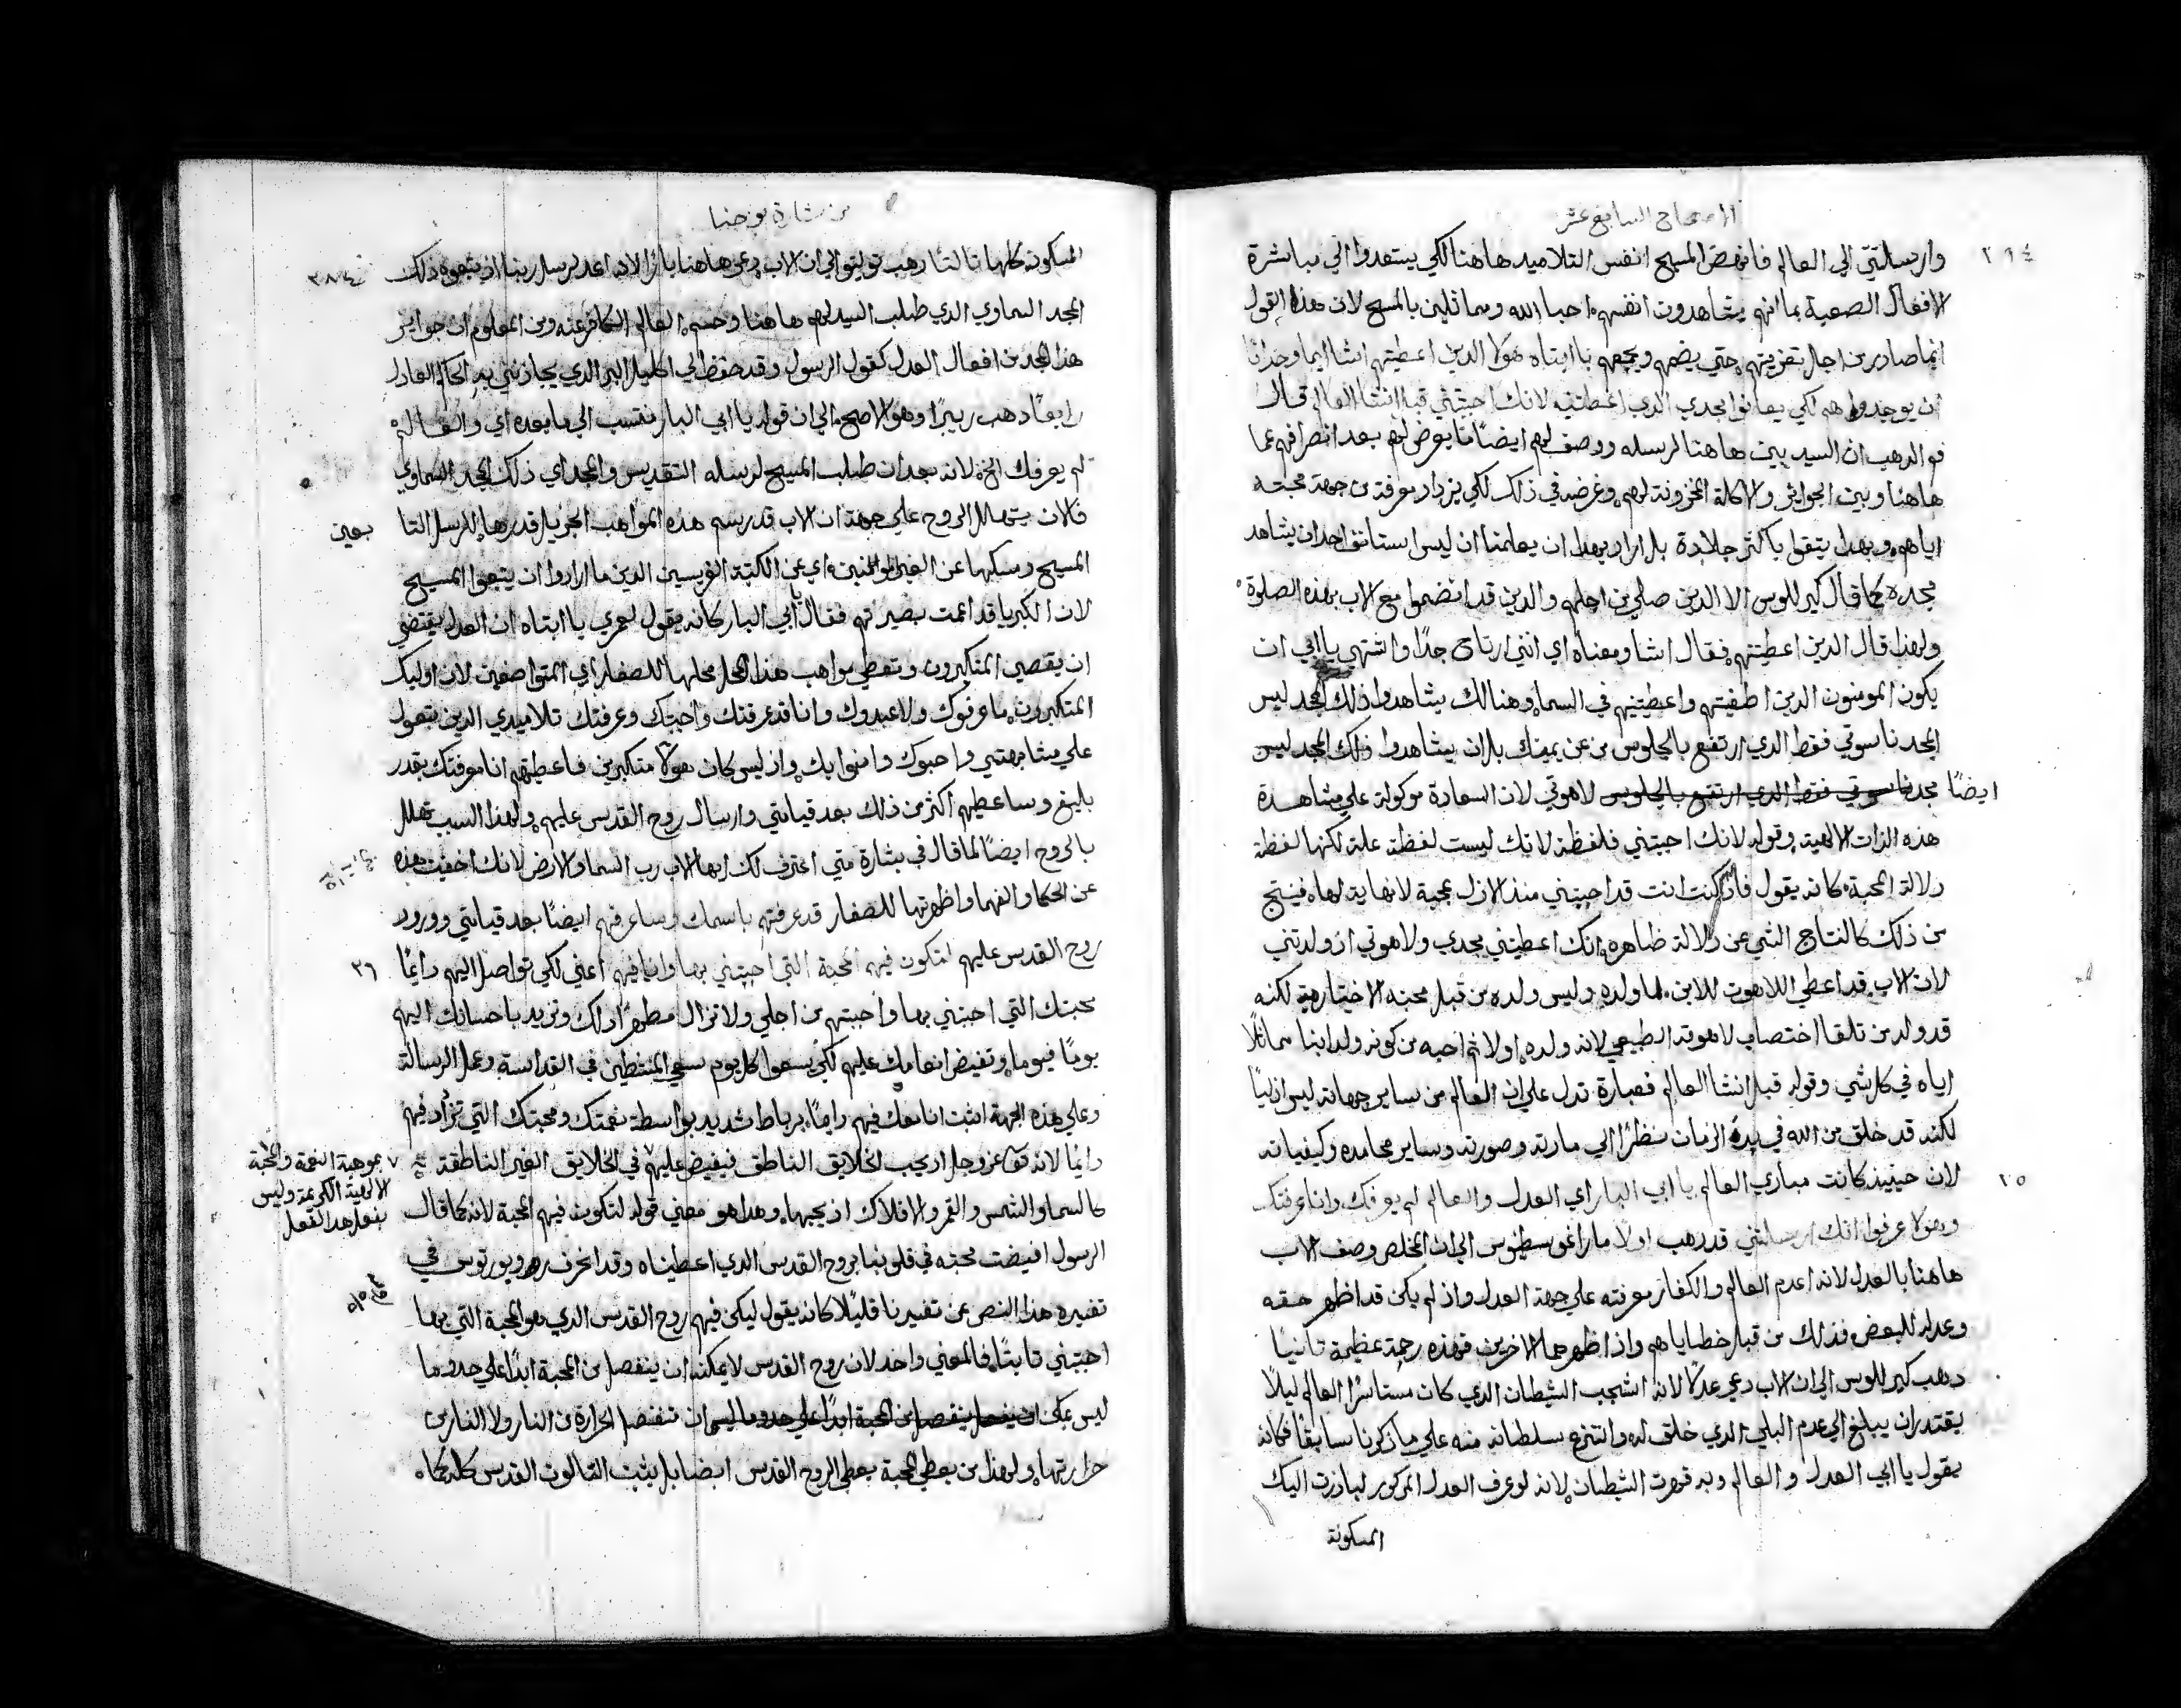 الاصحاح السابع عشر
وارسالتني الي العالم فانهض المسيح انفس التلاميد هاهنا لكي يستعدوا الي مباشرة
الافعال الصعبة بما انهم يشاهدون انفسهم احبا الله ومماثلين بالمسيح لان هذا القول
انما صادر من اجل تعزيتهم حتي يضمهم ويجمعهم يا ابتاه هولا الدين اعطيتهم اشا ايما وجد انا
ان يوجدوا هم لكي يعاينوا مجدي الدي اعطيتني لانك احببتني قبل انشا العالم قال
فم الدهب ان السيد بين هاهنا لرسله ووصف لهم ايضًا ما يعرض لهم بعد انصرافهم عما
هاهنا وبين الجوايز والاكلة المخزونة لهم وغرضه في ذلك لكي يزداد معرفة من جهة محبته
اياهم وبهدا يتقوا باكثر جلادة بل اراد بهدا ان يعلمنا ان ليس استانف احدا ان يشاهد
مجده كما قال كيرللوس الا الدين صلي من اجلهم والدين قد انضموا مع الاب بهذه الصلوة
ولهدا قال الدين اعطيتهم فقال اشا ومعناه اي انني ارتاح جدًا واشتهي يا ابي ان
يكون المومنون الدين اصطفيتهم واعطيتنيهم في السما وهنالك يشاهدوا ذلك المجد ليس
المجد ناسوتي فقط الدي ارتفع بالجلوس من عن يمينك بل ان يشاهدوا ذلك المجد ليس
ايضًا مجد ناسوتي فقط الدي ارتفع بالجلوس لاهوتي لان السعادة موكولة علي مشاهدة
هذه الذات الالهية وقوله لانك احببتني فلفظة لانك ليست لفظة علة لكنها لفظة
دلالة المحبة كانه يقول فاذ كنت انت قد احببتني منذ الازل بمحبة لانهاية لها فينتج
من ذلك كالنتاج الشي عن دلالة ظاهره انك اعطيتني مجدي ولاهوتي اذ ولدتني
لان الاب قد اعطي اللاهوت للابن لما ولده وليس ولده من قبل محبته الاختيارية لكنه
قد ولد من تلقا اختصاب لاهوته الطبيعي لانه ولده اولا ثم احبه من كونه ولد ابنا مماثلًا
اياه في كل شي وقوله قبل انشا العالم فعبارة تدل علي ان العالم من ساير جهاته ليس ازليًا
لكنه قد خلق من الله في بدء الزمان نظرًا الي مادته وصورته وساير محامده وكيفياته
٢٥ لان حينيذ كانت مبادي العالم يا ابي البار اي العدل والعالم لم يعرفك وانا عرفتك
وهولا عرفوا انك ارسلتني قد دهب اولًا ماراغوسطينوس الي ان المخلص وصف الاب
هاهنا بالعدل لانه اعدم العالم والكفار معرفته علي جهة العدل واذ لم يكن قد اظهر حقه
وعدله للبعض فذلك من قبل خطاياهم واذ اظهرهما لاخرين فهذه رحمة عظيمة تانيًا
دهب كيرللوس الي ان الاب دعي عدلًا لانه اشجب الشيطان الدي كان مستاسرًا العالم ليلًا
يقتدر ان يبلغ الي عدم البلي الدي خلق له وانتزع سلطانه منه علي ما ذكرنا سابقًا فكانه
يقول يا ابي العدل والعالم وبه قهرت الشيطان لانه لو عرف العدل المذكور لبادرت اليك
المسكونة
من بشارة يوحنا
المسكونة كلها ثالثًا دهب الي ان الاب دعي هاهنا بارًا لانه اعد لرسل ربنا ادتبعوه ذلك
المجد السماوي الدي طلب السيد لهم هاهنا وحسم العالم الكافر عنه ومن المعلوم ان جوايز
هذا المجد من افعال العدل كقول الرسول وقد حفظ لي اكليل البر الدي يجازيني به الحاكم العادل
رابعًا دهب ريبرا وهو الاصح الي ان قوله يا ابي البار منتسب الي ما بعده اي والعالم
لم يعرفك الخ لانه بعد ان طلب المسيح لرسله التقديس والمجد اي ذلك المجد السماوي
فالان يتهلل بالروح علي جهة ان الاب قد رسم هذه المواهب الجزيل قدرها للرسل التا
بعين المسيح ومسكها عن الغير المومنين اي عن الكتبة الفريسين الدين ما ارادوا ان يتبعوا المسيح
لان الكبريا قد اعمت بصيرتهم فقال يا ابي البار كانه يقول لعمري يا ابتاه ان العدل يقتضي
ان يقصي المتكبرون وتعطي مواهب هذا المحل محلها للصغار اي المتواضعين لان اوليك
المتكبرون ما عرفوك ولا عبدوك وانا قد عرفتك واحببتك وعرفتك تلاميدي الدين بتعول
علي مشابهتي واحبوك وامنوا بك واذ ليس كان هولا متكبرين فاعطيتهم انا معرفتك بقدر
بليغ وساعطيهم اكثر من ذلك بعد قيامتي وارسال روح القدس عليهم ولهذا السبب تهلل
بالروح ايضًا لما قال في بشارة متي اعترف لك ايها الاب رب السما والارض لانك اخفيت هذه
عن الحكما والفهما واظهرتها للصغار قد عرفتهم باسمك وساعرفهم ايضًا بعد قيامتي وورود
روح القدس عليهم لتكون فيهم المحبة التي احببتني بها وانا فيهم اعني لكي تواصل اليهم دايمًا ٢٦
محبتك التي احببتني بها واحببتهم من اجلي ولا تزال مطهرًا دلك وتزيد باحسانك اليهم
يومًا فيوما وتفيض انعامك عليهم لكي يسعوا كل يوم سعي المنتطين في القداسة وعمل الرسالة
وعلي هذه الجهة اثبت انا معك فيهم دايمًا برباط شديد بواسطة نعمتك ومحبتك التي تزاد فيهم
دايمًا لانه تعالي عز وجل اد يحب الخلايق الناطق فيفيض عليهم في الخلايق الغير الناطقة
بموهبة النعمة والمحبة
الالهية الكريمة وليس
بفعل هدا الفعل
كالسما والشمس والقمر والافلاك اذ يحبها وهدا هو معني قوله لتكون فيهم المحبة لانه كما قال
الرسول افيضت محبته في قلوبنا بروح القدس الدي اعطيناه وقد انحرف روبورتوس في
تفسيره هذا النص عن تفسيرنا قليلًا كانه يقول ليكن فيهم روح القدس الدي هو المحبة التي بها
احببتني ثابتًا فالمعني واحد لان روح القدس لا يمكنه ان ينفصل من المحبة ابدًا علي حدو ما
ليس يمكن ان ينفصل من المحبة ابدًا علي حدو ما ليس ان تنفصل الحرارة من النار ولا النار من
حرارتها ولهذا من يعطي المحبة يعطي الروح القدس ايضا بل يثبت الثالوث القدس كله كما